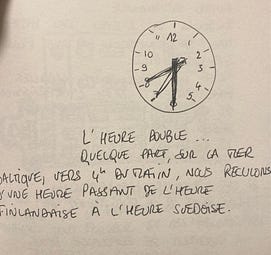 12
10
2
9
3
8
4
7
5
6
L'HEURE DOUBLE ...
QUELQUE PART, SUR LA MER
BALTIQUE, VERS 4h DU MATIN, NOUS RECULONS
D'UNE HEURE PASSANT DE L'HEURE
FINLANDAISE À L'HEURE SUÉDOISE.